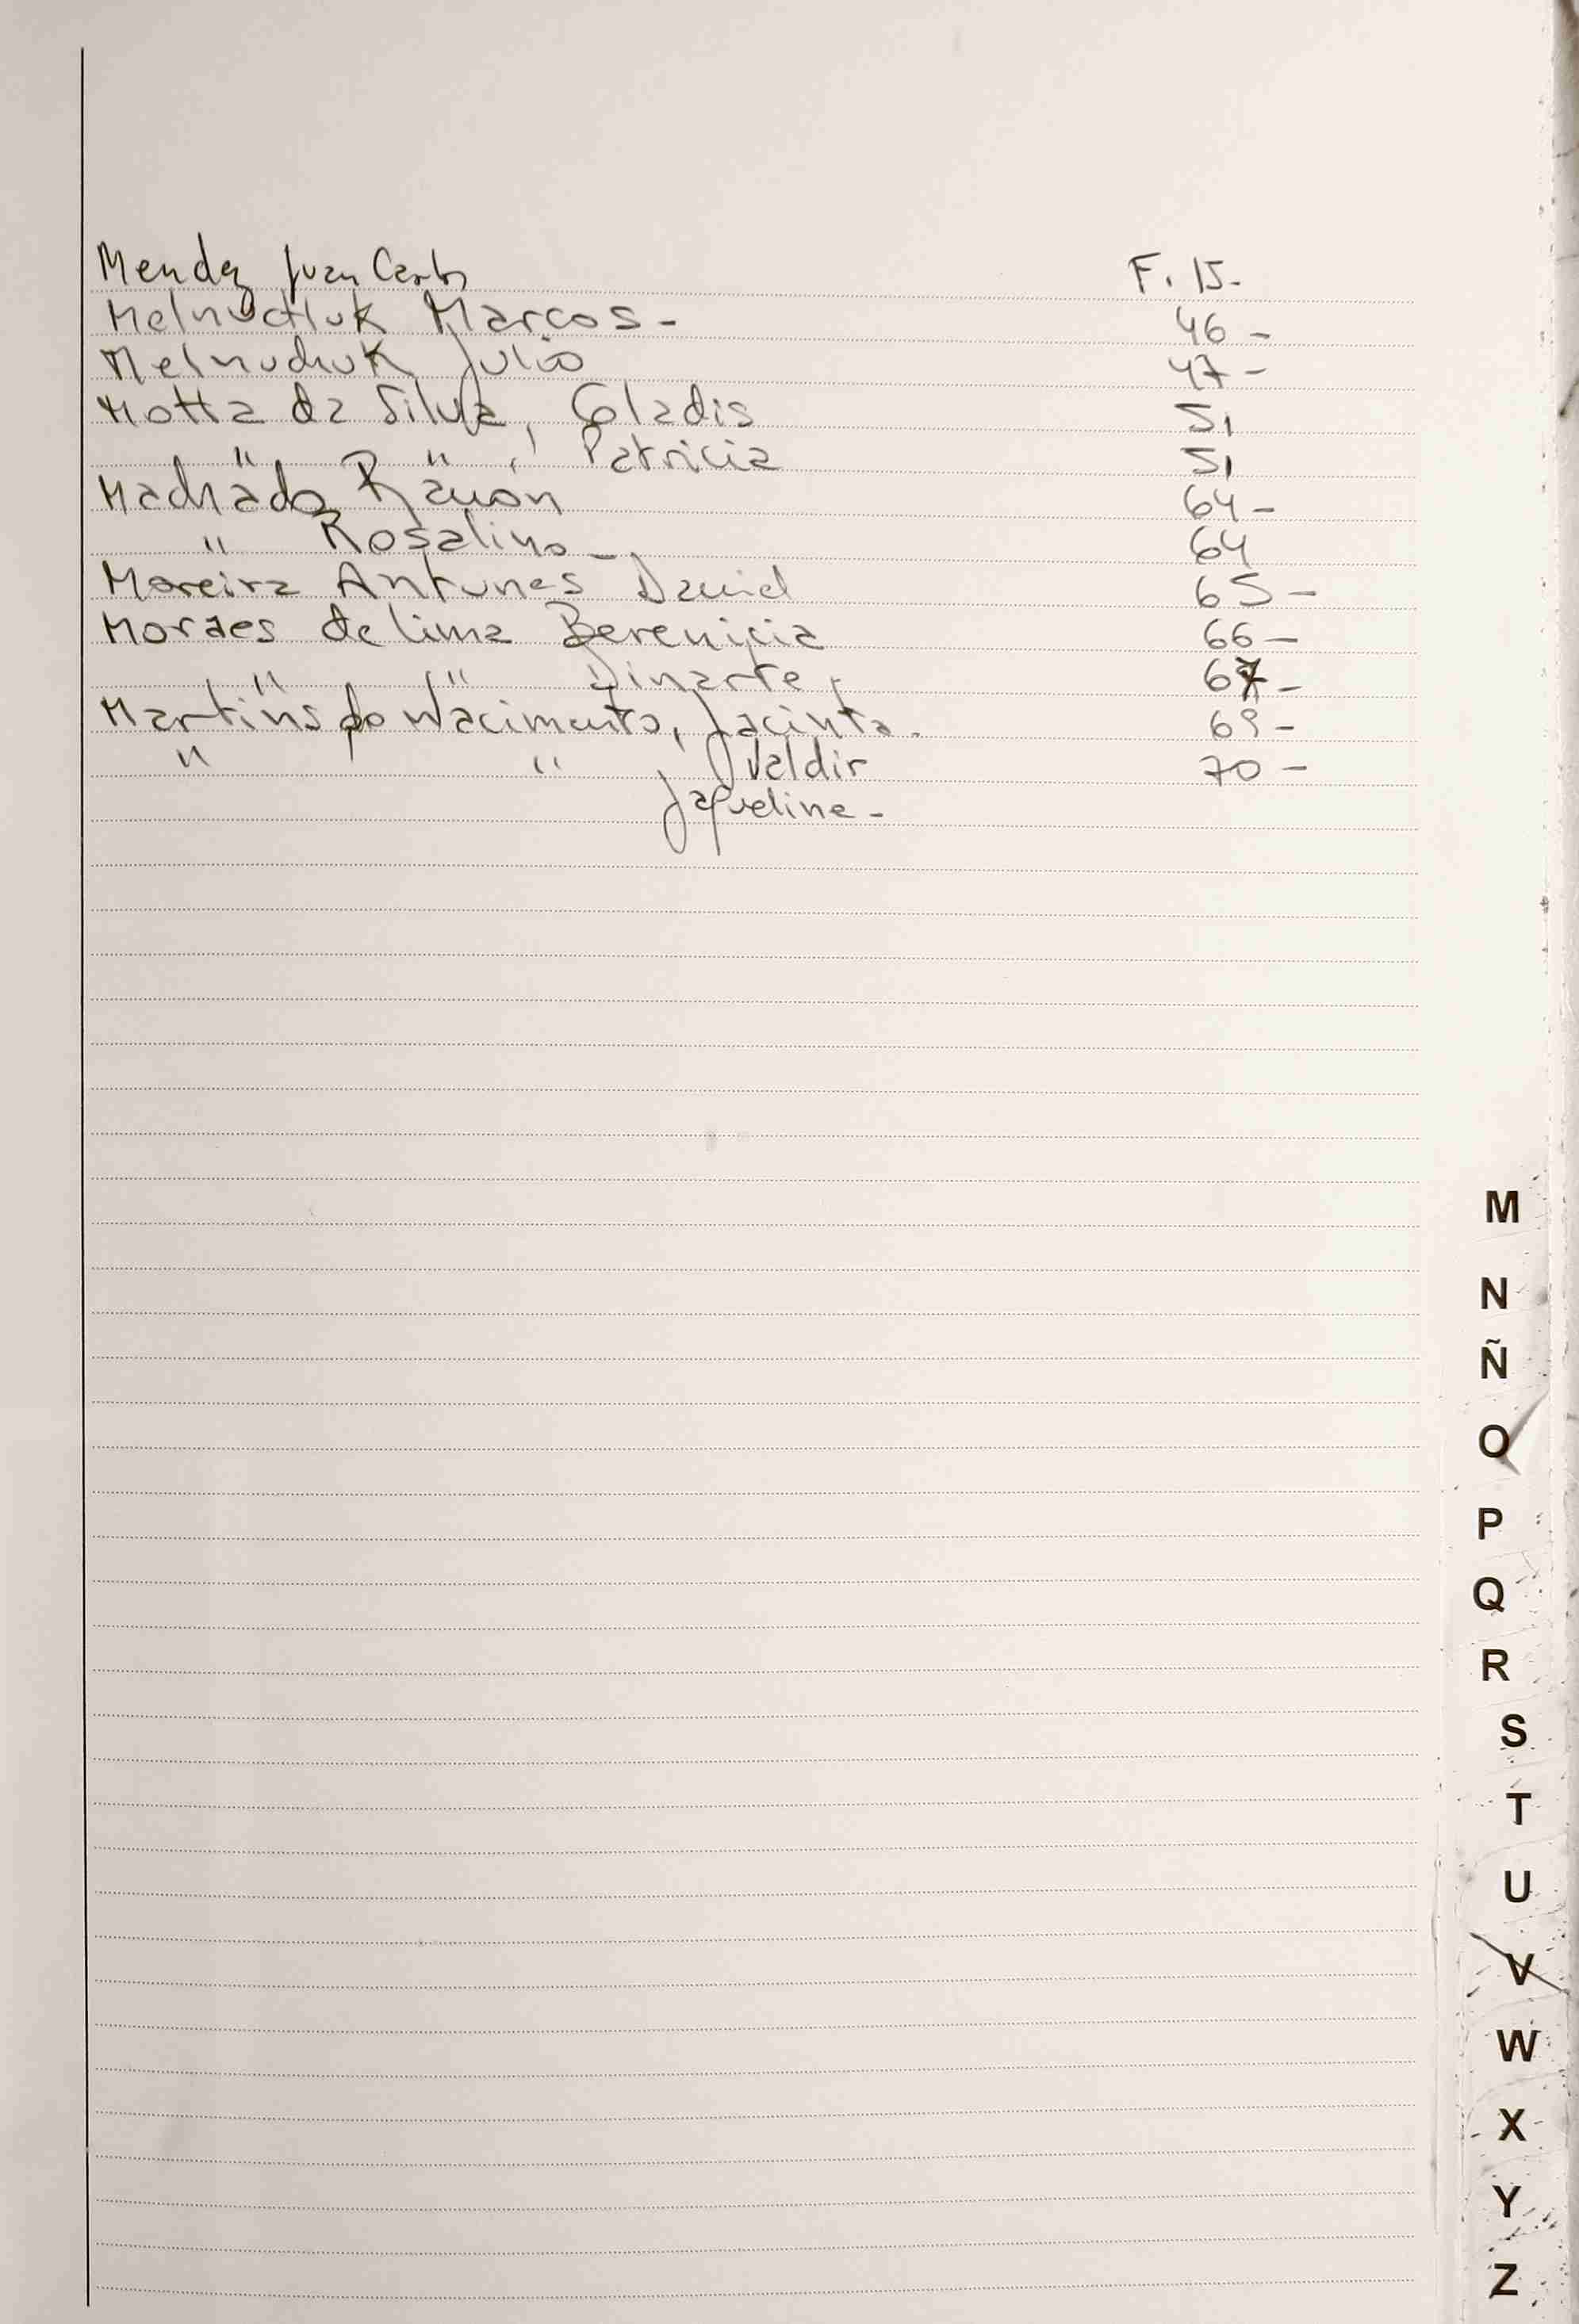 Mendez Juan Carlos F. 15.-
Melnuchuk Marcos - 46 -
Melnuchuk Julio 47 -
Motta da Silva, Gladis 51
" " , Patricia 51
Machado Ramón 64 -
" Rosalino - 64
Moreira Antunes David 65 -
Moraes de Lima Berenicia 66 -
" " Dinarte, 67 -
Martins do Nacimento, Jacinta. 69 -
" " , Valdir 70 -
Jaqueline -
M
N
Ñ
O
P
Q
R
S
T
U
V
W
X
Y
Z